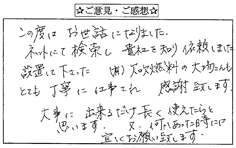 ☆ご意見・ご感想☆
この度はお世話になりました。
ネットにて検索し 貴社を知り依頼しました
設置して下さった (有) 燃料の さんも
とても丁寧に仕事され 感謝致します。
大事に 出来るだけ長く使えたらと
思います。 又、何かあった時には
宜しくお願い致します